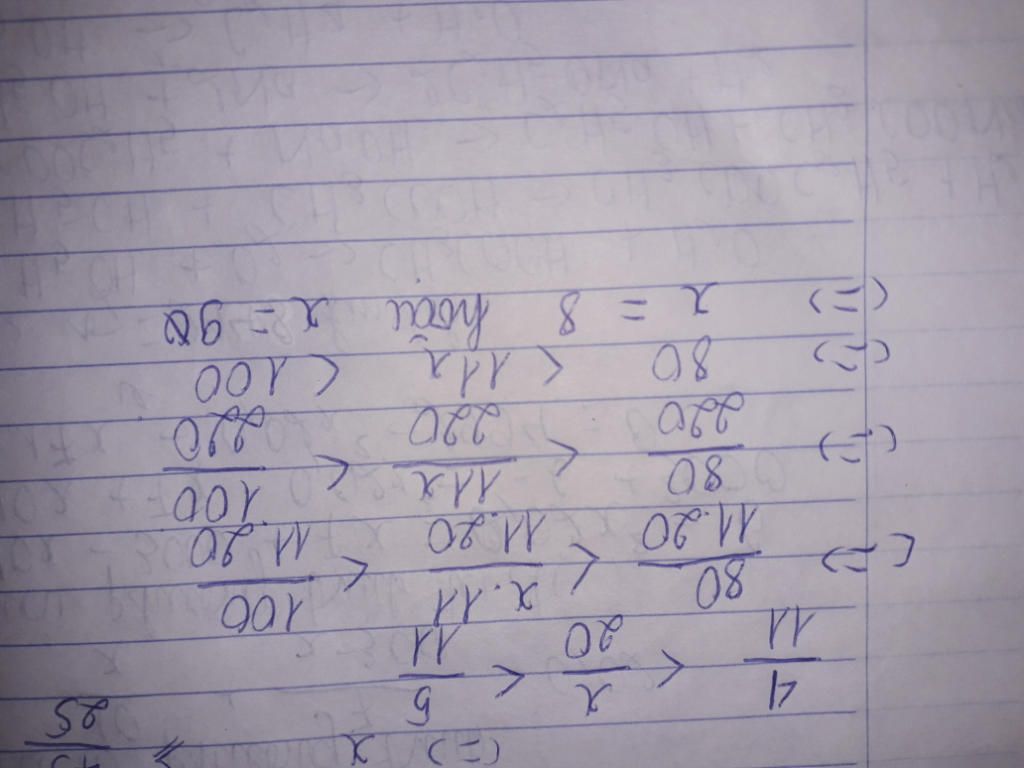 (=) x
4/11 < x/20 < 5/11
(=) 80/11.20 < x.11/11.20 < 100/11.20
(=) 80/220 < 11x/220 < 100/220
(=) 80 < 11x < 100
(=) x = 8 hoặc x = 9